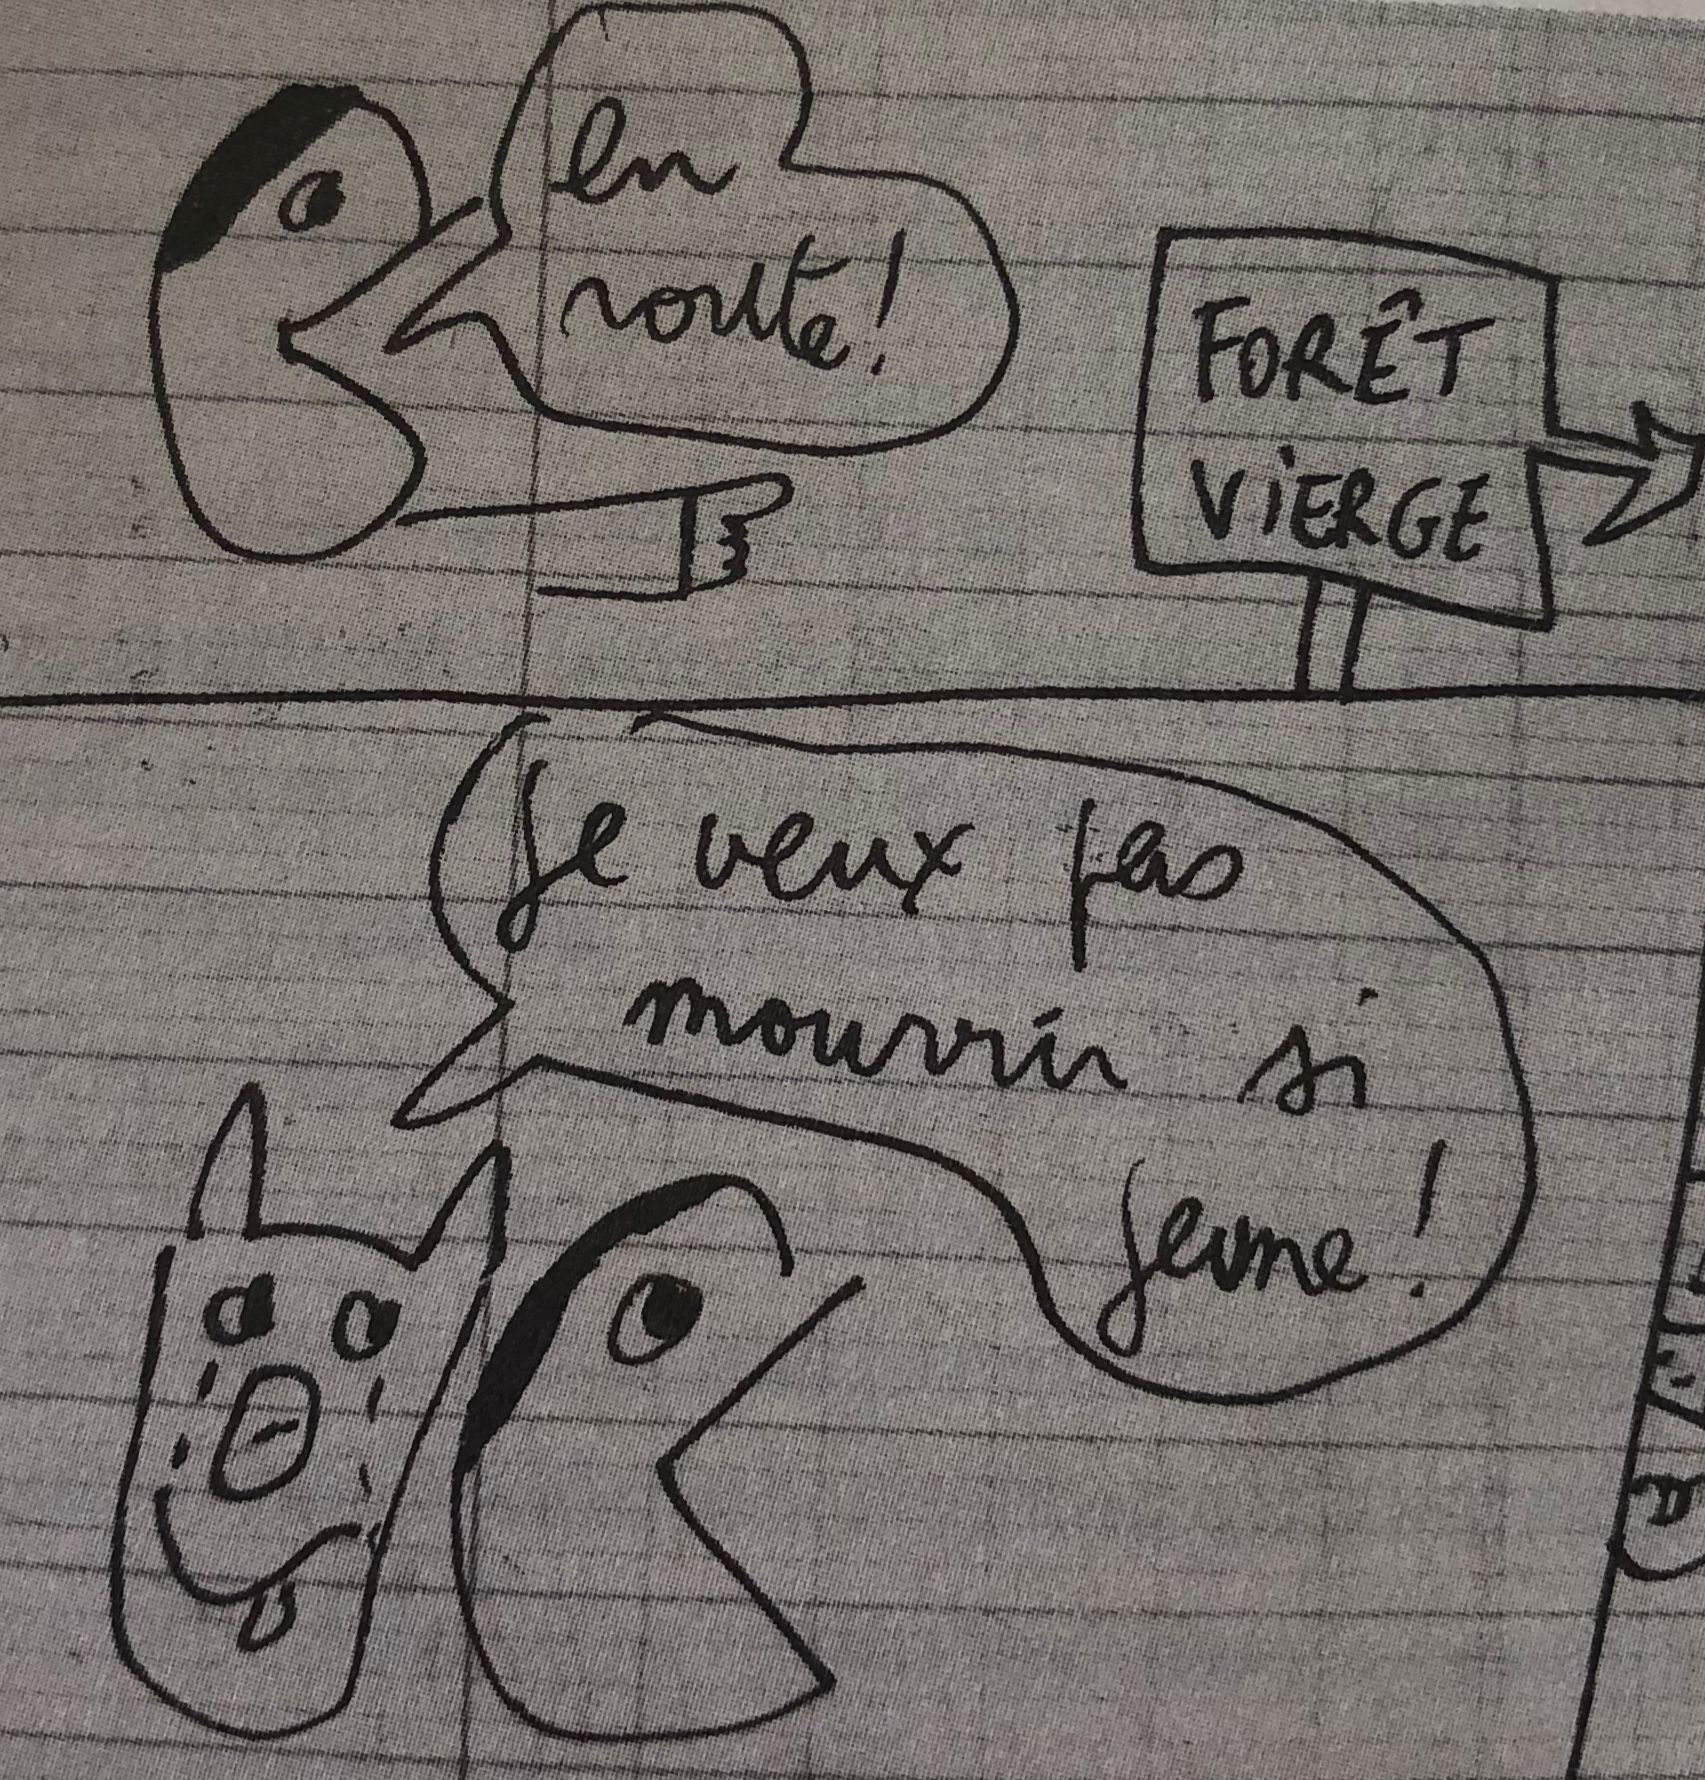 en
route!
FORÊT
ViERGE
je veux pas
mourrir si
jeune!